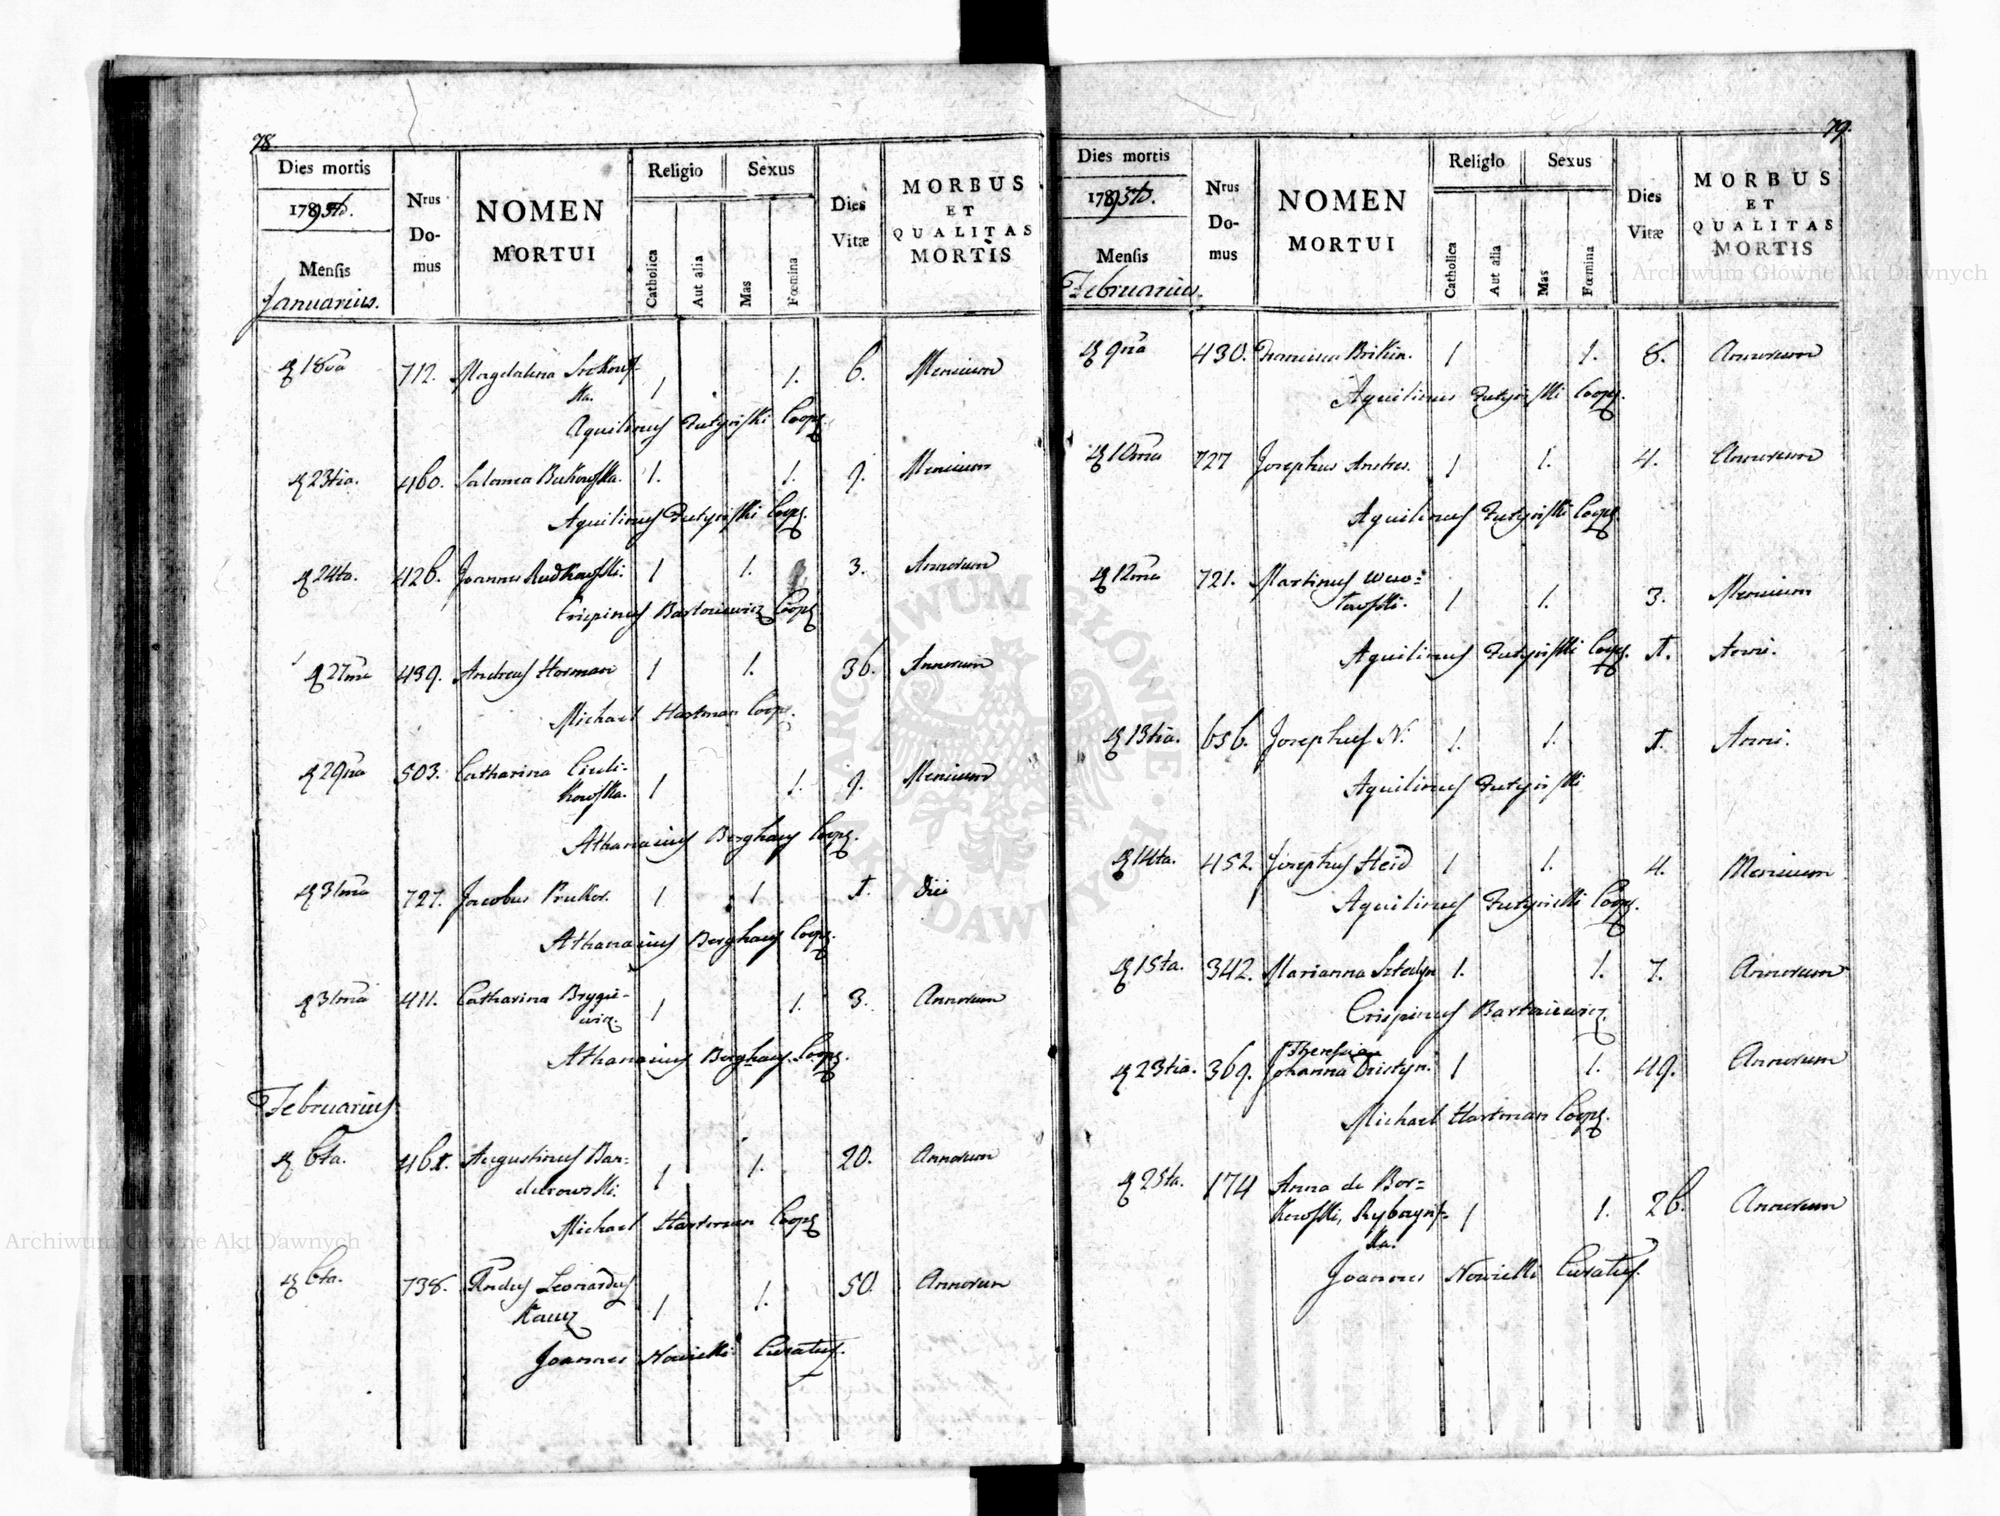 78
Dies mortis
1795to.
Mensis
Januarius.
Nrus Do-mus
NOMEN MORTUI
Religio
Catholica
Aut alia
Sexus
Mas
Fœmina
Dies Vitæ
MORBUS ET QUALITAS MORTIS
18va 712. Magdalena 1 1. 6. Mensium
ka.
Aquilinus Futyriski Coop.
23tia. 460. Salomea Bukowska. 1. 1. 9. Mensium
Aquilinus Futyriski Coop.
24ta. 426. Joannes Rudkowski. 1 1. 3. Annorum
Crispinus Bartoniewicz Coop.
27ma 439. Andreas Horman 1 1. 36. Annorum
Michael Hartman Coop.
29na 503. Catharina Ciuli-
kowska. 1 1. 9. Mensium
Athanasius Berghaus Coop.
31ma 727. Jacobus Pruker. 1 1 1. Diei
Athanasius Berghaus Coop.
31ma 411. Catharina Brygie-
wicz. 1 1. 3. Annorum
Athanasius Berghaus Coop.
Februarius
6ta. 461. Augustinus Ban-
durowski. 1 1. 20. Annorum
Michael Hartman Coop.
6ta. 738. Rndus Leonardus
Kauz 1 1. 50. Annorum
Joannes Nowicki Curatus.
79.
Dies mortis
1795to.
Mensis
Februarius.
Nrus Do-mus
NOMEN MORTUI
Religio
Catholica
Aut alia
Sexus
Mas
Fœmina
Dies Vitæ
MORBUS ET QUALITAS MORTIS
9na 430. Francisca Brikin. 1 1. 8. Annorum
Aquilinus Futyriski Coop.
10ma 727 Josephus Andres. 1 1. 4. Annorum
Aquilinus Futyriski Coop.
12ma 721. Martinus
1 1. 3. Mensium
Aquilinus Futyriski Coop. 1. Anni.
13tia. 656. Josephus N. 1. 1. 1. Anni.
Aquilinus Futyriski
14ta. 452. Josephus Heid 1 1. 4. Mensium
Aquilinus Futyriski Coop.
15ta. 342. Marianna Sztedyn 1. 1. 7. Annorum
Crispinus Bartoniewicz.
Theresia
23tia. 369. Johanna Dristyn. 1 1. 49. Annorum
Michael Hartman Coop.
25ta. 174 Anna de Bor-
kowski, Rybczyns-
ka. 1 1. 26. Annorum
Joannes Nowicki Curatus.
Archiwum Główne Akt Dawnych
Archiwum Główne Akt Dawnych
ARCHIWUM GŁÓWNE AKT DAWNYCH